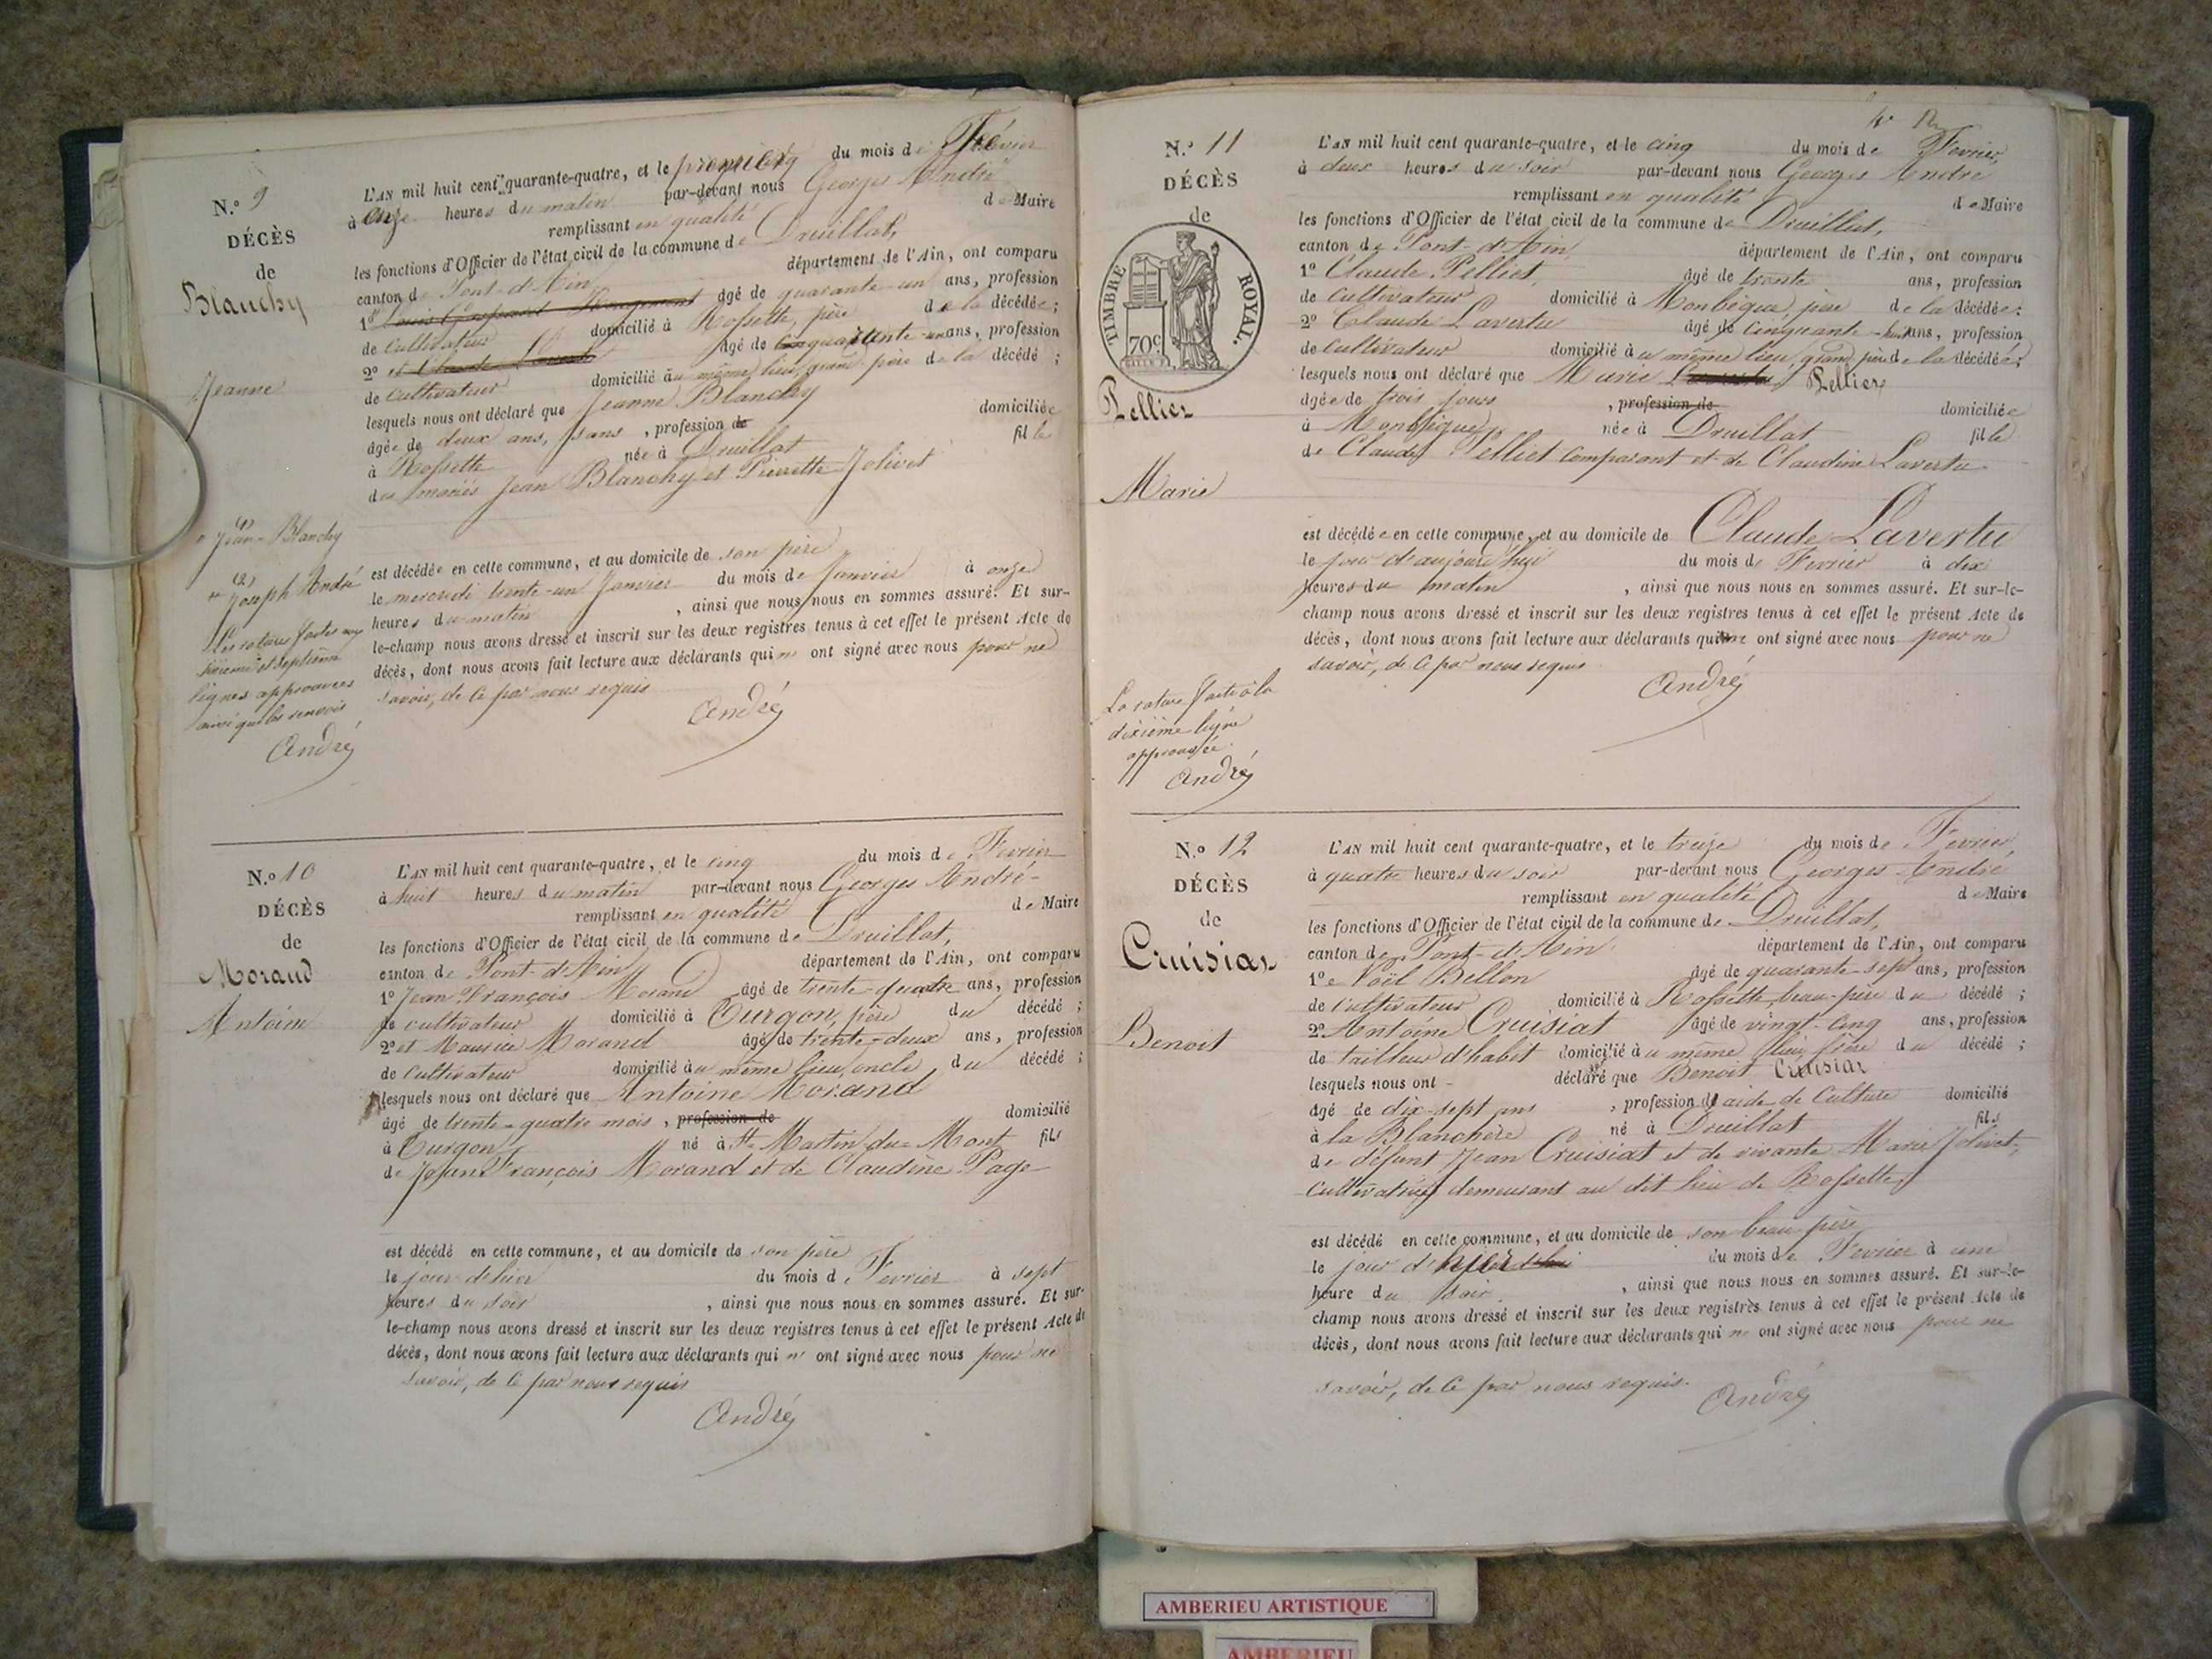 N.º 9
DÉCÈS
de
Blanchy
Jeanne
L'AN mil huit cent quarante-quatre, et le premier du mois de Février
à onze heures du matin par-devant nous Georges André
remplissant en qualité de Maire
les fonctions d'Officier de l'état civil de la commune de Druillat,
canton de Pont-d'Ain département de l'Ain, ont comparu
1º âgé de quarante-un ans, profession
de cultivateur domicilié à Rossette, père de la décédée;
2º âgé de ans, profession
de cultivateur domicilié au même lieu, grand-père de la décédé;
lesquels nous ont déclaré que Jeanne Blanchy
âgée de deux ans, sans, profession de domiciliée
à Rossette née à Druillat fille
des mariés Jean Blanchy et Pierrette Jolivet
(1) Jean Blanchy
(2) Joseph André
Les ratures faites aux
sixième et septième
lignes approuvées
ainsi que les renvois
André
est décédée en cette commune, et au domicile de son père
le mercredi trente-un Janvier du mois de Janvier à onze
heures du matin, ainsi que nous nous en sommes assuré. Et sur-
le-champ nous avons dressé et inscrit sur les deux registres tenus à cet effet le présent Acte de
décès, dont nous avons fait lecture aux déclarants qui n' ont signé avec nous pour ne
savoir, de ce par nous requis
André
N.º 10
DÉCÈS
de
Morand
Antoine
L'AN mil huit cent quarante-quatre, et le cinq du mois de Fevrier
à huit heures du matin par-devant nous Georges André
remplissant en qualité de Maire
les fonctions d'Officier de l'état civil de la commune de Druillat,
canton de Pont-d'Ain département de l'Ain, ont comparu
1º Jean François Morand âgé de trente-quatre ans, profession
de cultivateur domicilié à Turgon, père du décédé;
2º et Maurice Morand âgé de trente-deux ans, profession
de cultivateur domicilié au même lieu, oncle du décédé;
lesquels nous ont déclaré que Antoine Morand
âgé de trente-quatre mois, profession de domicilié
à Turgon né à St Martin-du-Mont fils
de Jean François Morand et de Claudine Page
est décédé en cette commune, et au domicile de son père
le jour d'hier du mois de Fevrier à sept
heures du soir, ainsi que nous nous en sommes assuré. Et sur-
le-champ nous avons dressé et inscrit sur les deux registres tenus à cet effet le présent Acte de
décès, dont nous avons fait lecture aux déclarants qui n' ont signé avec nous pour ne
savoir, de ce par nous requis
André
N.º 11
DÉCÈS
de
TIMBRE ROYAL.
70c
Pellier
Marie
L'AN mil huit cent quarante-quatre, et le cinq du mois de Fevrier,
à deux heures du soir par-devant nous Georges André
remplissant en qualité de Maire
les fonctions d'Officier de l'état civil de la commune de Druillat,
canton de Pont-d'Ain département de l'Ain, ont comparu
1º Claude Pelliet, âgé de trente ans, profession
de cultivateur domicilié à Monbègue, père de la décédée;
2º Claude Lavertu âgé de cinquante-huit ans, profession
de cultivateur domicilié au même lieu, grand père de la décédée;
lesquels nous ont déclaré que Marie Pellier
âgée de trois jours, profession de domiciliée
à Monbègue née à Druillat fille
de Claude Pelliet comparant et de Claudine Lavertu
est décédée en cette commune, et au domicile de Claude Lavertu
le jour d'aujourd'hui du mois de Fevrier à dix
heures du matin, ainsi que nous nous en sommes assuré. Et sur-le-
champ nous avons dressé et inscrit sur les deux registres tenus à cet effet le présent Acte de
décès, dont nous avons fait lecture aux déclarants qui n' ont signé avec nous pour ne
savoir, de ce par nous requis
André
La rature faite à la
dixième ligne
approuvée.
André
N.º 12
DÉCÈS
de
Cruisiat
Benoit
L'AN mil huit cent quarante-quatre, et le treize du mois de Fevrier
à quatre heures du soir par-devant nous Georges André
remplissant en qualité de Maire
les fonctions d'Officier de l'état civil de la commune de Druillat,
canton de Pont-d'Ain département de l'Ain, ont comparu
1º Noël Bellon âgé de quarante-sept ans, profession
de cultivateur domicilié à Rossette, beau-père du décédé;
2º Antoine Cruisiat âgé de vingt-cinq ans, profession
de tailleur d'habit domicilié au même lieu, frère du décédé;
lesquels nous ont déclaré que Benoit Cruisiat
âgé de dix-sept ans, profession d'aide de culture domicilié
à la Blanchère né à Druillat fils
de défunt Jean Cruisiat et de vivante Marie Jolivet,
cultivatrice demeurant au dit lieu de Rossette
est décédé en cette commune, et au domicile de son beau père
le jour d'hier du mois de Fevrier à une
heure du soir, ainsi que nous nous en sommes assuré. Et sur-le-
champ nous avons dressé et inscrit sur les deux registres tenus à cet effet le présent Acte de
décès, dont nous avons fait lecture aux déclarants qui n' ont signé avec nous pour ne
savoir, de ce par nous requis.
André
AMBERIEU ARTISTIQUE
AMBERIEU